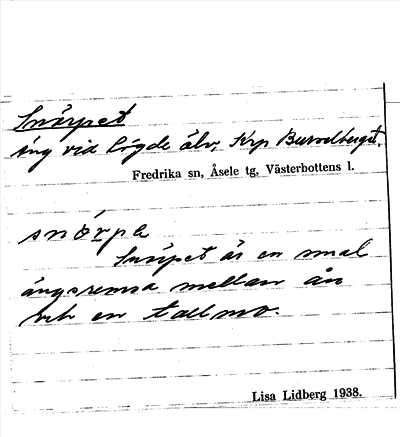 Snärpet
äng vid Lögde älv, Krp
Fredrika sn, Åsele tg, Västerbottens l.
Snärpet är en smal
ängsremsa mellan ån
och en tallmo.
Lisa Lidberg 1938.